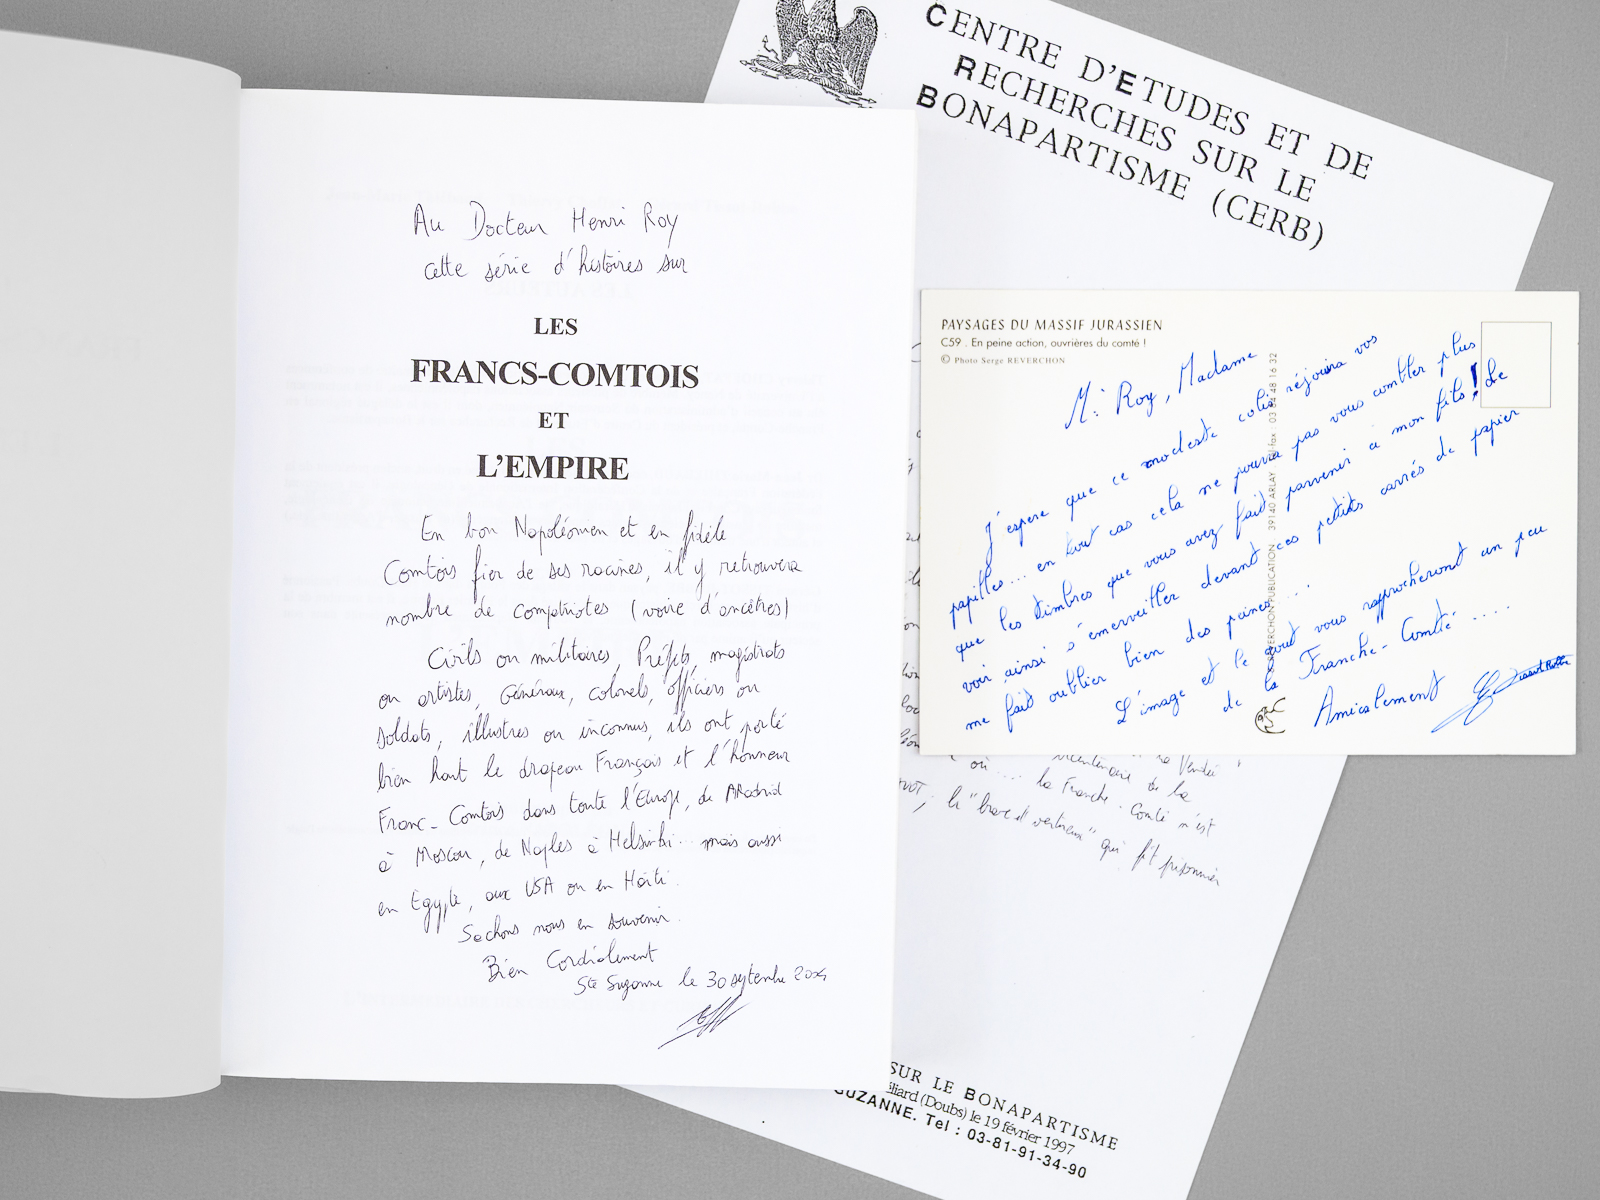 Au Docteur Henri Roy
cette série d'histoires sur
LES
FRANCS-COMTOIS
ET
L'EMPIRE
En bon Napoléonien et en fidèle
Comtois fier de ses racines, il y retrouvera
nombre de compatriotes (voire d'ancêtres)
Civils ou militaires, Préfets, magistrats
ou artistes, Généraux, colonels, officiers ou
soldats, illustres ou inconnus, ils ont porté
bien haut le drapeau Français et l'honneur
Franc-Comtois dans toute l'Europe, de Madrid
à Moscou, de Naples à Helsinki... mais aussi
en Egypte, aux USA ou en Haïti.
Sachons nous en souvenir.
Bien Cordialement
Ste Suzanne le 30 septembre 2004
CENTRE D'ETUDES ET DE
RECHERCHES SUR LE
BONAPARTISME (CERB)
PAYSAGES DU MASSIF JURASSIEN
C59 . En peine action, ouvrières du comté !
© Photo Serge REVERCHON
REVERCHON PUBLICATION 39140 ARLAY fax : 03 84 48 16 32
Mr Roy, Madame
J'espere que ce modeste colis réjouira vos
papilles... en tout cas cela ne pourra pas vous combler plus
que les timbres que vous avez fait parvenir à mon fils! Le
voir ainsi s'émerveiller devant ces petits carrés de papier
me fait oublier bien des peines...
L'image et le gout vous rapprocheront un peu
de la Franche-Comté....
Amicalement
la Vendée
bicentenaire de la
où.... la Franche-Comté n'est
le "brave et vertueux" qui fit prisonnier
SUR LE BONAPARTISME
(Doubs) le 19 février 1997
SUZANNE. Tel : 03-81-91-34-90